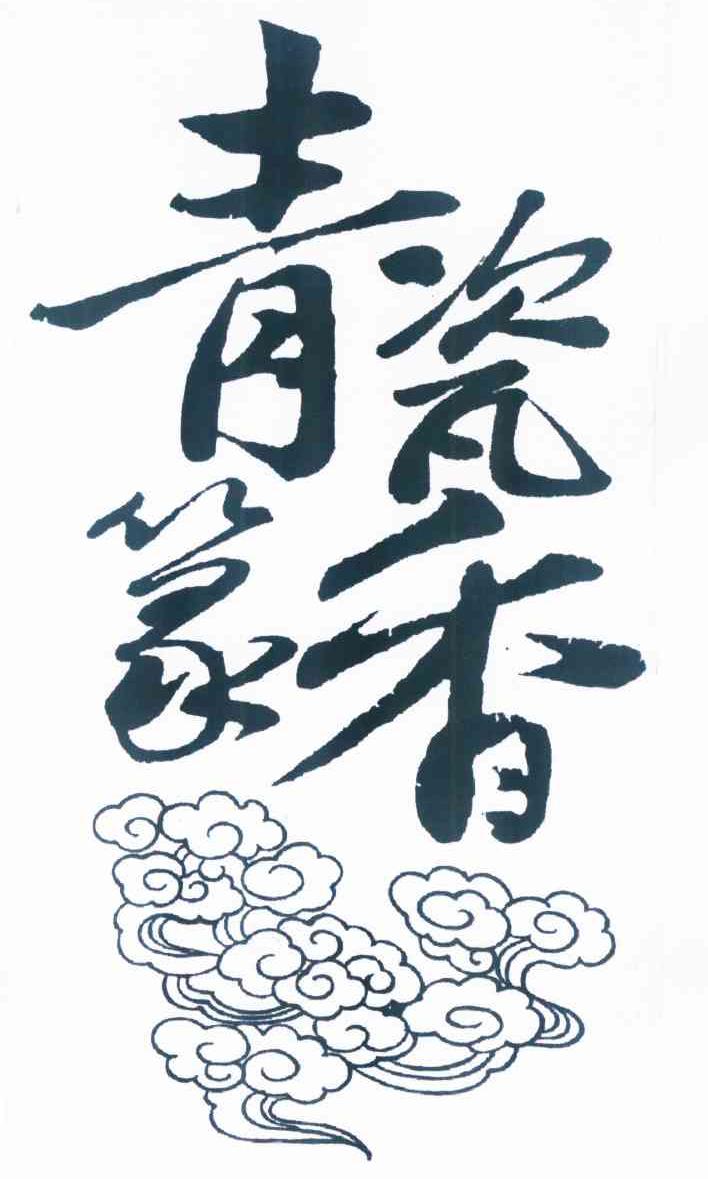 青瓷篆香